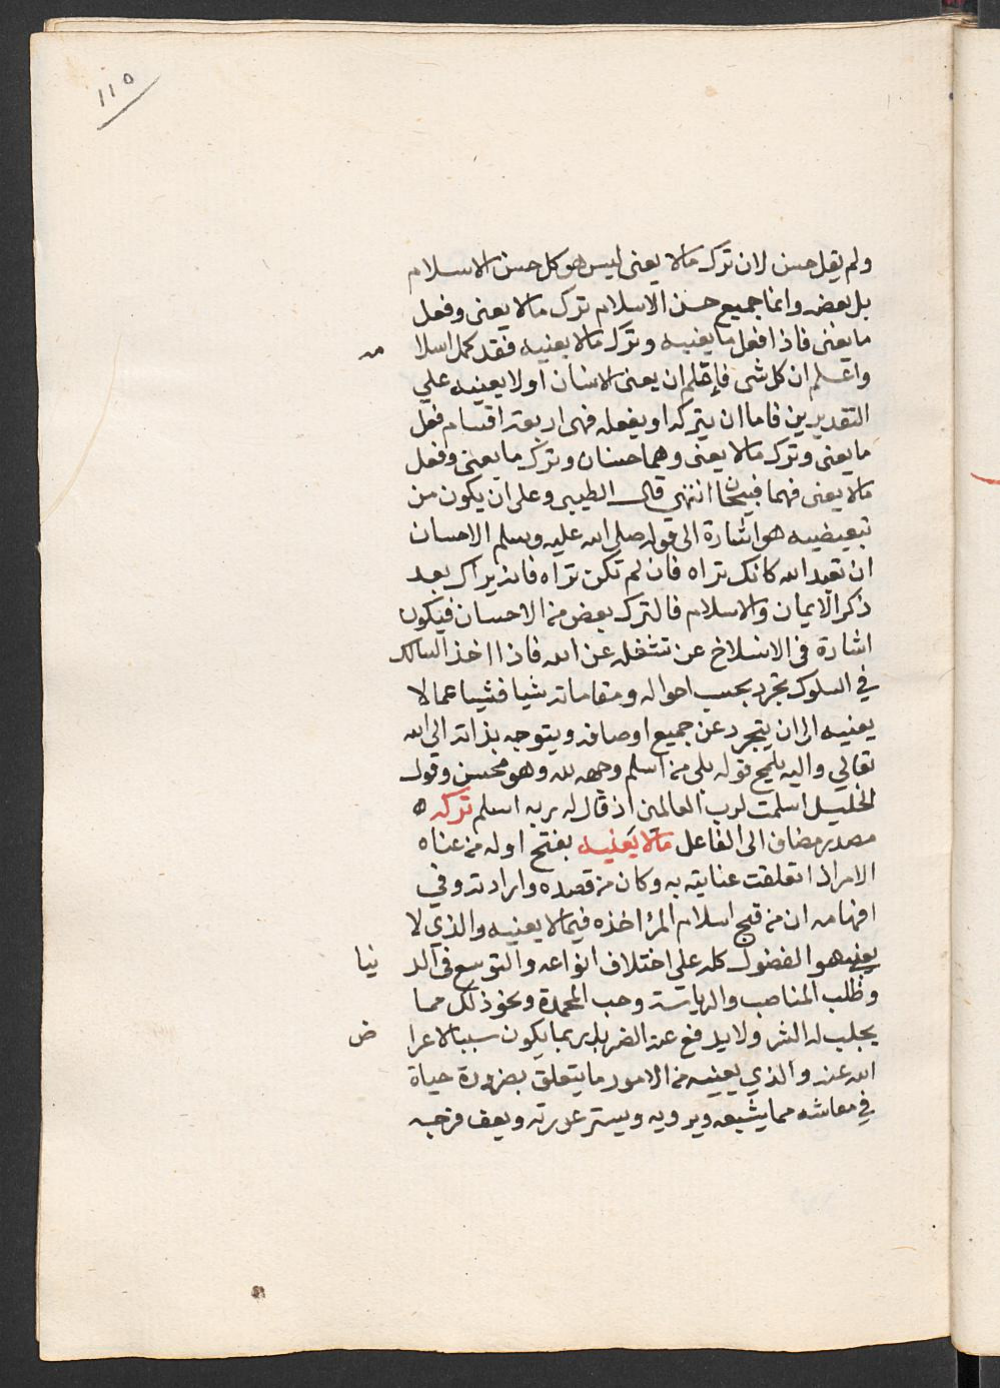 ١١٥
ولم يقل حسن لان ترك مالا يعنى ليس هو كل حسن الاسلام
بل بعضه وانما جميع حسن الاسلام ترك مالا يعنى وفعل
ما يعنى فاذا فعل ما يعنيه وترك مالا يعنيه فقد كمل اسلا مه
واعلم ان كل شى فإمّا ان يعنى الانسان او لا يعنيه على
التقديرين فاما ان يتركه او يفعله فهى اربعة اقسام فعل
ما يعنى وترك مالا يعنى وهما حسنان وترك ما يعنى وفعل
مالا يعنى فهما قبيحان انتهى قال الطيبى وعلى ان يكون من
تبعيضيه هو اشارة الى قوله صلى الله عليه وسلم الاحسان
ان تعبد الله كانك تراه فان لم تكن تراه فانه يراك بعد
ذكر الايمان والاسلام فالترك بعض من الاحسان فيكون
اشارة فى الانسلاخ عن تشغله عن الله فاذا اخذ السالك
في السلوك تجرد بحسب احواله ومقاماته شيا فشيا عما لا
يعنيه الى ان يتجرد عن جميع اوصافه ويتوجه بذاته الى الله
تعالي واليه يلمح قوله بلى من اسلم وجهه لله وهو محسن وقول
الخليل اسلمت لرب العالمين اذ قال له ربه اسلم تركه ه
مصدر مضاف الى الفاعل مالا يعنيه بفتح اوله من عناه
الامر اذا تعلقت عنايته به وكان من قصده وارادته وفي
افهامه ان من قبح اسلام المرأ اخذه فيما لا يعنيه والذي لا
يعنيه هو الفضول كله على اختلاف انواعه والتوسع فى الد نيا
وطلب المناصب والرياسة وحب المحمدة ونحو ذلك مما
يجلب له الشر ولا يدفع عنه الضر بل ربما يكون سببا لاعرا ض
الله عنه والذي يعنيه من الامور ما يتعلق بضرورة حياة
في معاشه مما يشبعه ويرويه ويستر عورته ويعف فرجه